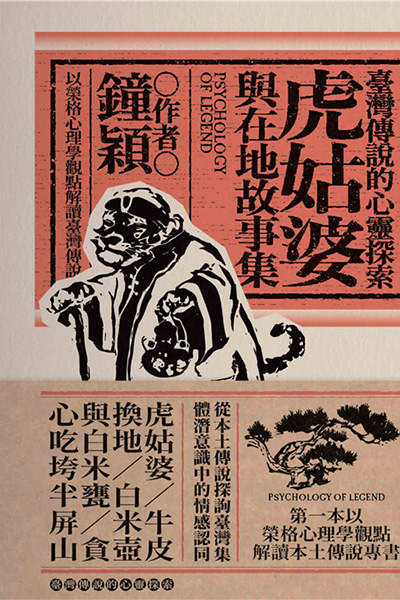 臺灣傳說的心靈探索
虎姑婆
與在地故事集
PSYCHOLOGY
OF LEGEND
○作者○
鐘穎
以榮格心理學觀點解讀臺灣傳說
虎姑婆／牛皮
換地／白米壺
與白米甕／貪
心吃垮半屏山
從本土傳說探詢臺灣集
體潛意識中的情感認同
PSYCHOLOGY OF LEGEND
第一本以
榮格心理學觀點
解讀本土傳說專書
臺灣傳說的心靈探索